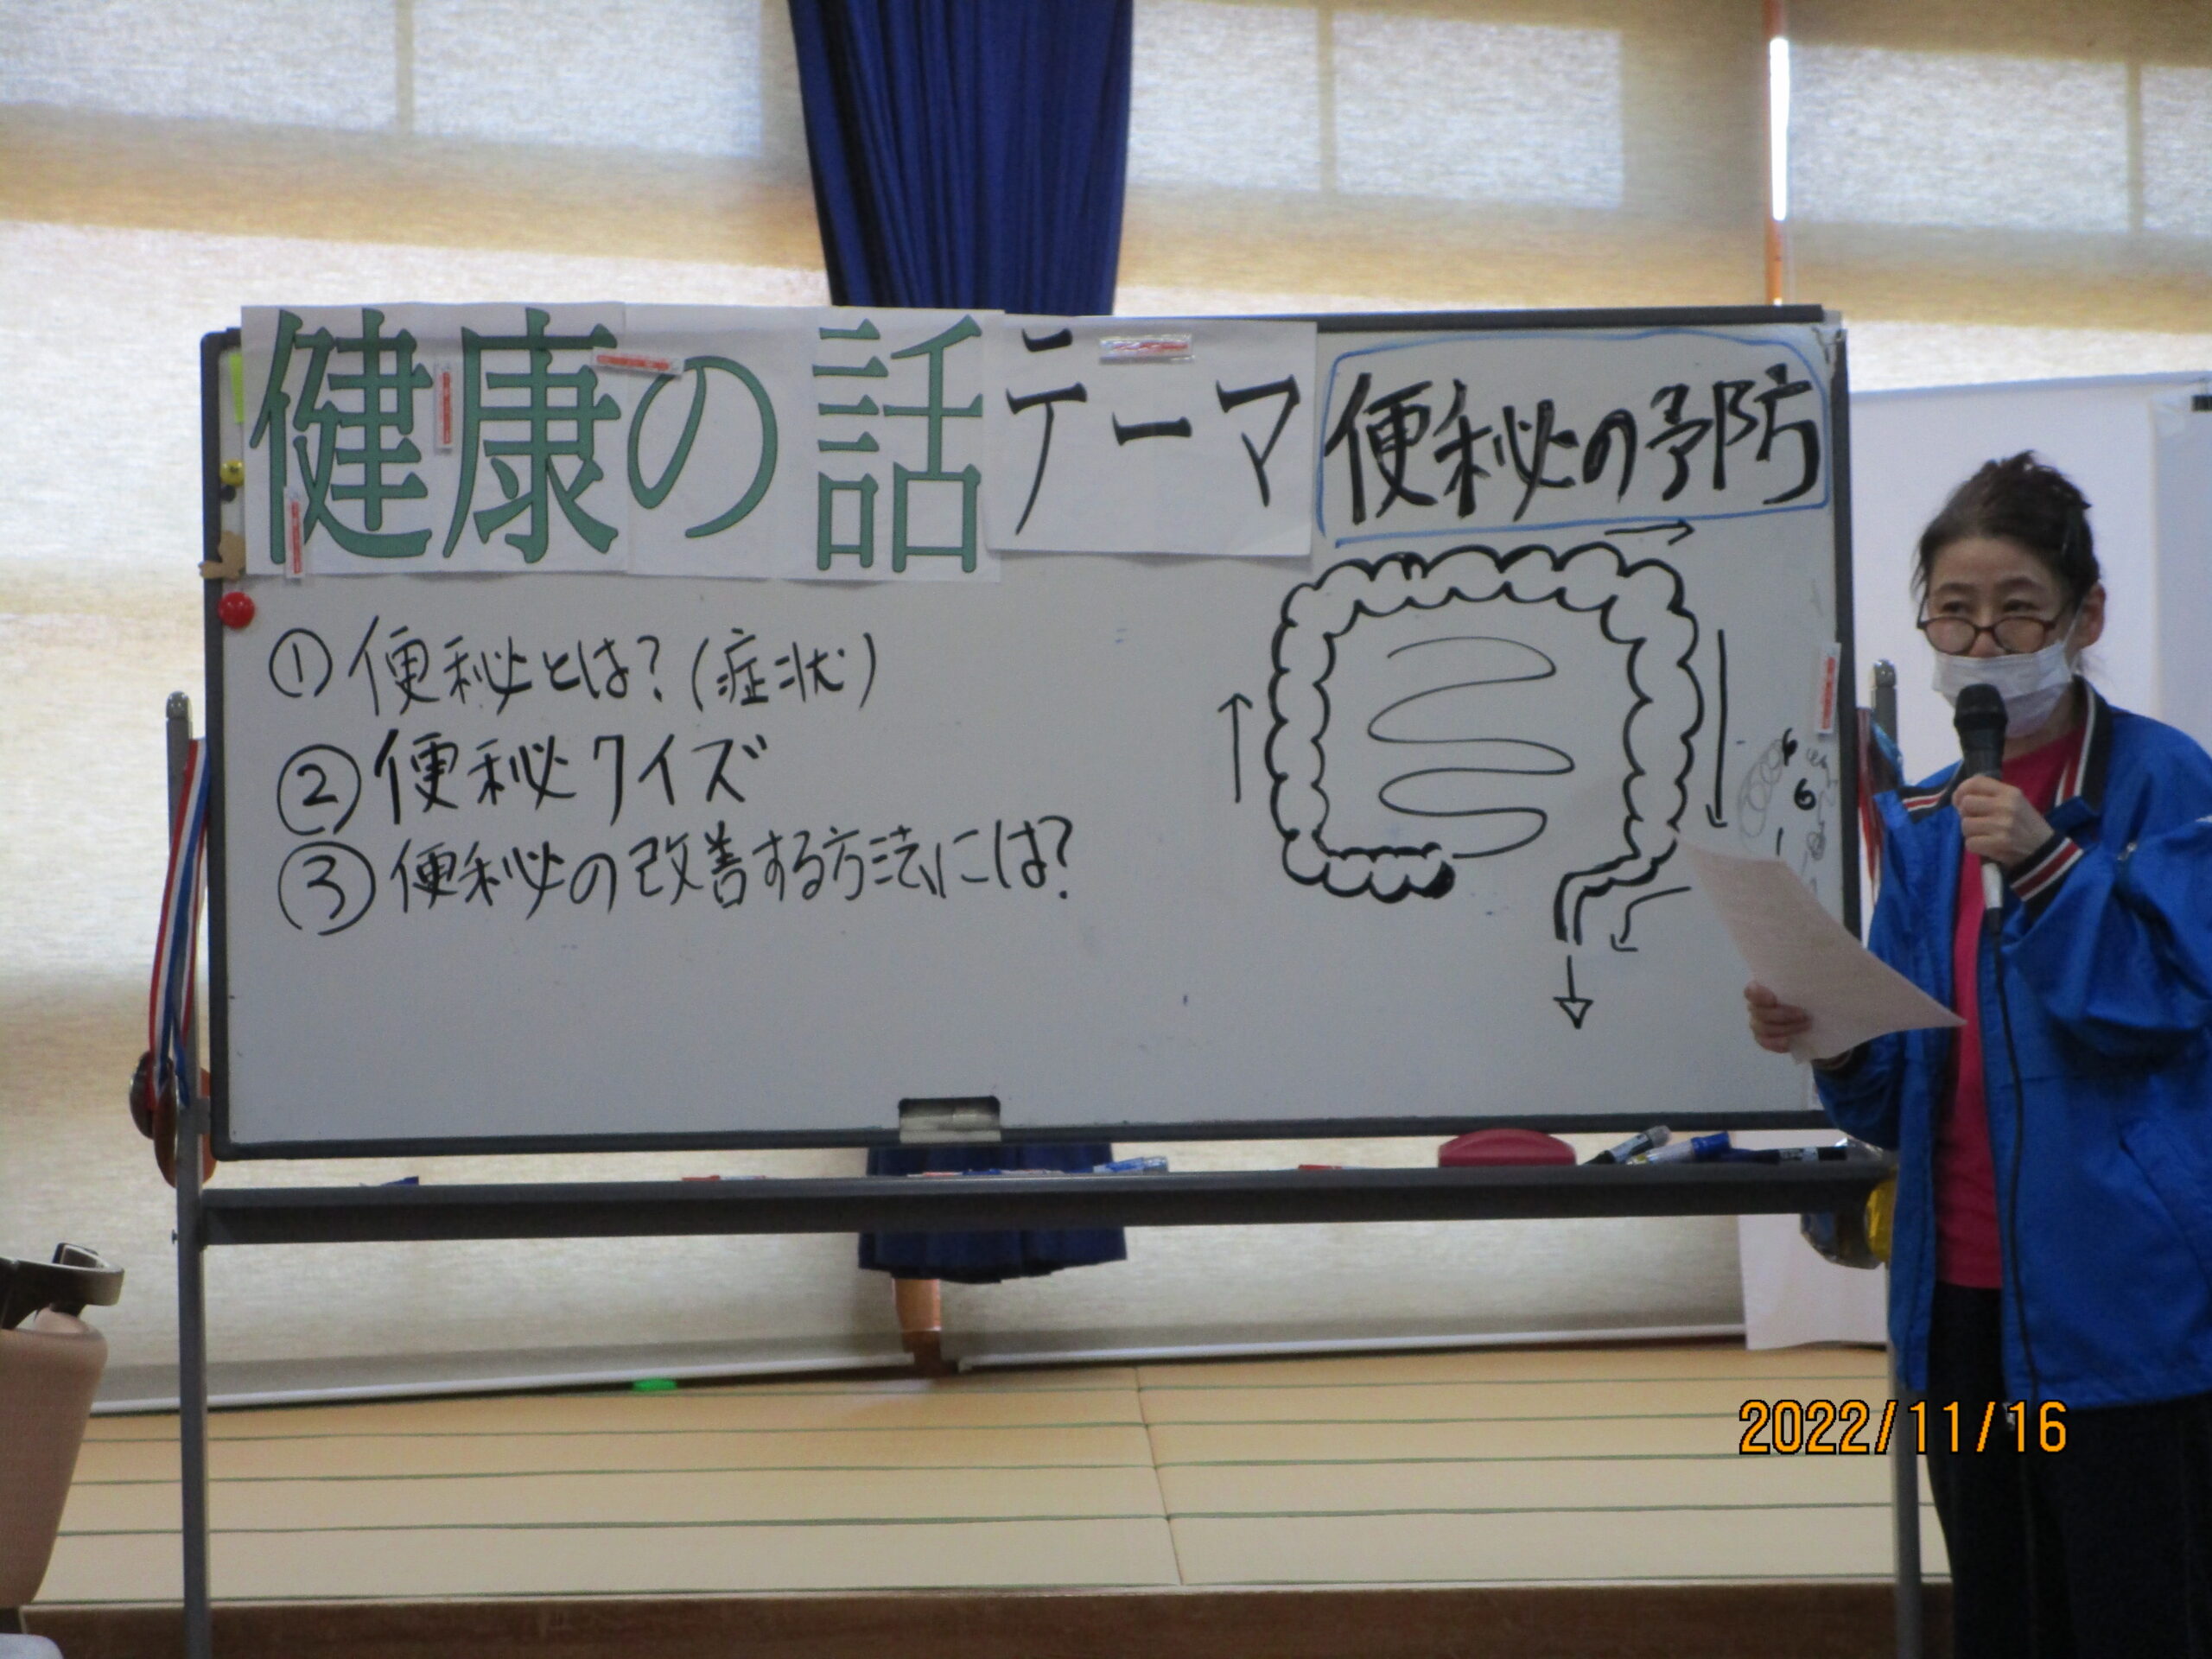 健康の話 テーマ 便秘の予防
① 便秘とは?(症状)
② 便秘クイズ
③ 便秘の改善する方法には?
2022/11/16